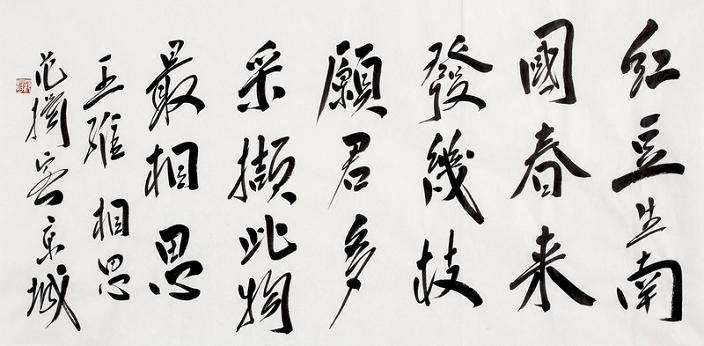 红豆生南
國春来
發幾枝
願君多
采擷此物
最相思
王维 相思
范客京城